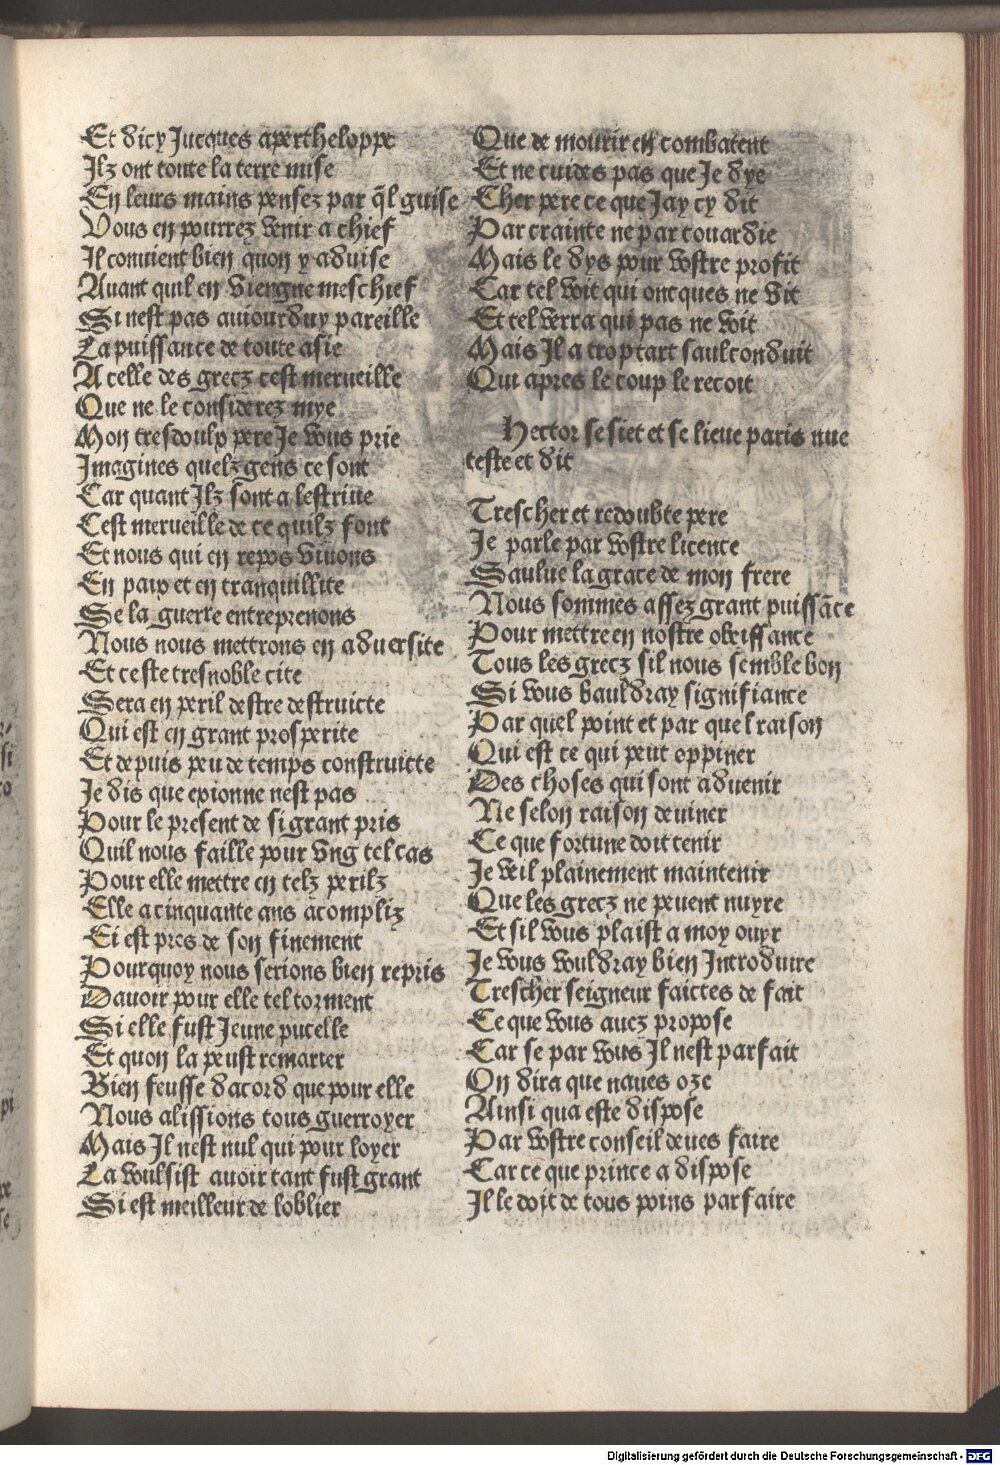 Et dicy Jucques apertheloppe
Ilz ont toute la terre mise
En leurs mains pensez par q̄l guise
Vous en pourrez venir a chief
Il conuient bien quon y aduise
Auant quil en viengne meschief
Si nest pas auiourduy pareille
La puissance de toute asie
A celle des grecz cest merueille
Que ne le considerez mye
Mon tresdoulx pere Je vous prie
Imagines quelz gens ce sont
Car quant Ilz sont a lestriue
Cest merueille de ce quilz font
Et nous qui en repos viuons
En paix et en tranquillite
Se la guerre entreprenons
Nous nous mettrons en aduersite
Et ceste tresnoble cite
Sera en peril destre destruicte
Qui est en grant prosperite
Et depuis peu de temps construicte
Je dis que exionne nest pas
Pour le present de si grant pris
Quil nous faille pour vng tel cas
Pour elle mettre en telz perilz
Elle a cinquante ans acompliz
Ei est pres de son finement
Pourquoy nous serions bien repris
Dauoir pour elle tel torment
Si elle fust Jeune pucelle
Et quon la peust remarier
Bien feusse dacord que pour elle
Nous alissions tous guerroyer
Mais Il nest nul qui pour loyer
La voulsist auoir tant fust grant
Si est meilleur de loblier
Que de mourir en combatent
Et ne cuides pas que Je dye
Cher pere ce que Jay cy dit
Par crainte ne par couardie
Mais le dys pour vostre profit
Car tel voit qui oncques ne vit
Et tel verra qui pas ne voit
Mais Il a trop tart saulconduit
Qui apres le coup le recoit
Hector se siet et se lieue paris nue
teste et dit
Trescher et redoubte pere
Je parle par vostre licence
Saulue la grace de mon frere
Nous sommes assez grant puissāce
Pour mettre en nostre obeissance
Tous les grecz sil nous semble bon
Si vous bauldray signifiance
Par quel point et par quel raison
Qui est ce qui peut oppiner
Des choses qui sont aduenir
Ne selon raison deuiner
Ce que fortune doit tenir
Je veil plainement maintenir
Que les grecz ne peuent nuyre
Et sil vous plaist a moy ouyr
Je vous vouldray bien Introduire
Trescher seigneur faictes de fait
Ce que vous auez propose
Car se par vous Il nest parfait
On dira que naues oze
Ainsi qua este dispose
Par vostre conseil deues faire
Car ce que prince a dispose
Il le doit de tous poins parfaire
Digitalisierung gefördert durch die Deutsche Forschungsgemeinschaft - DFG